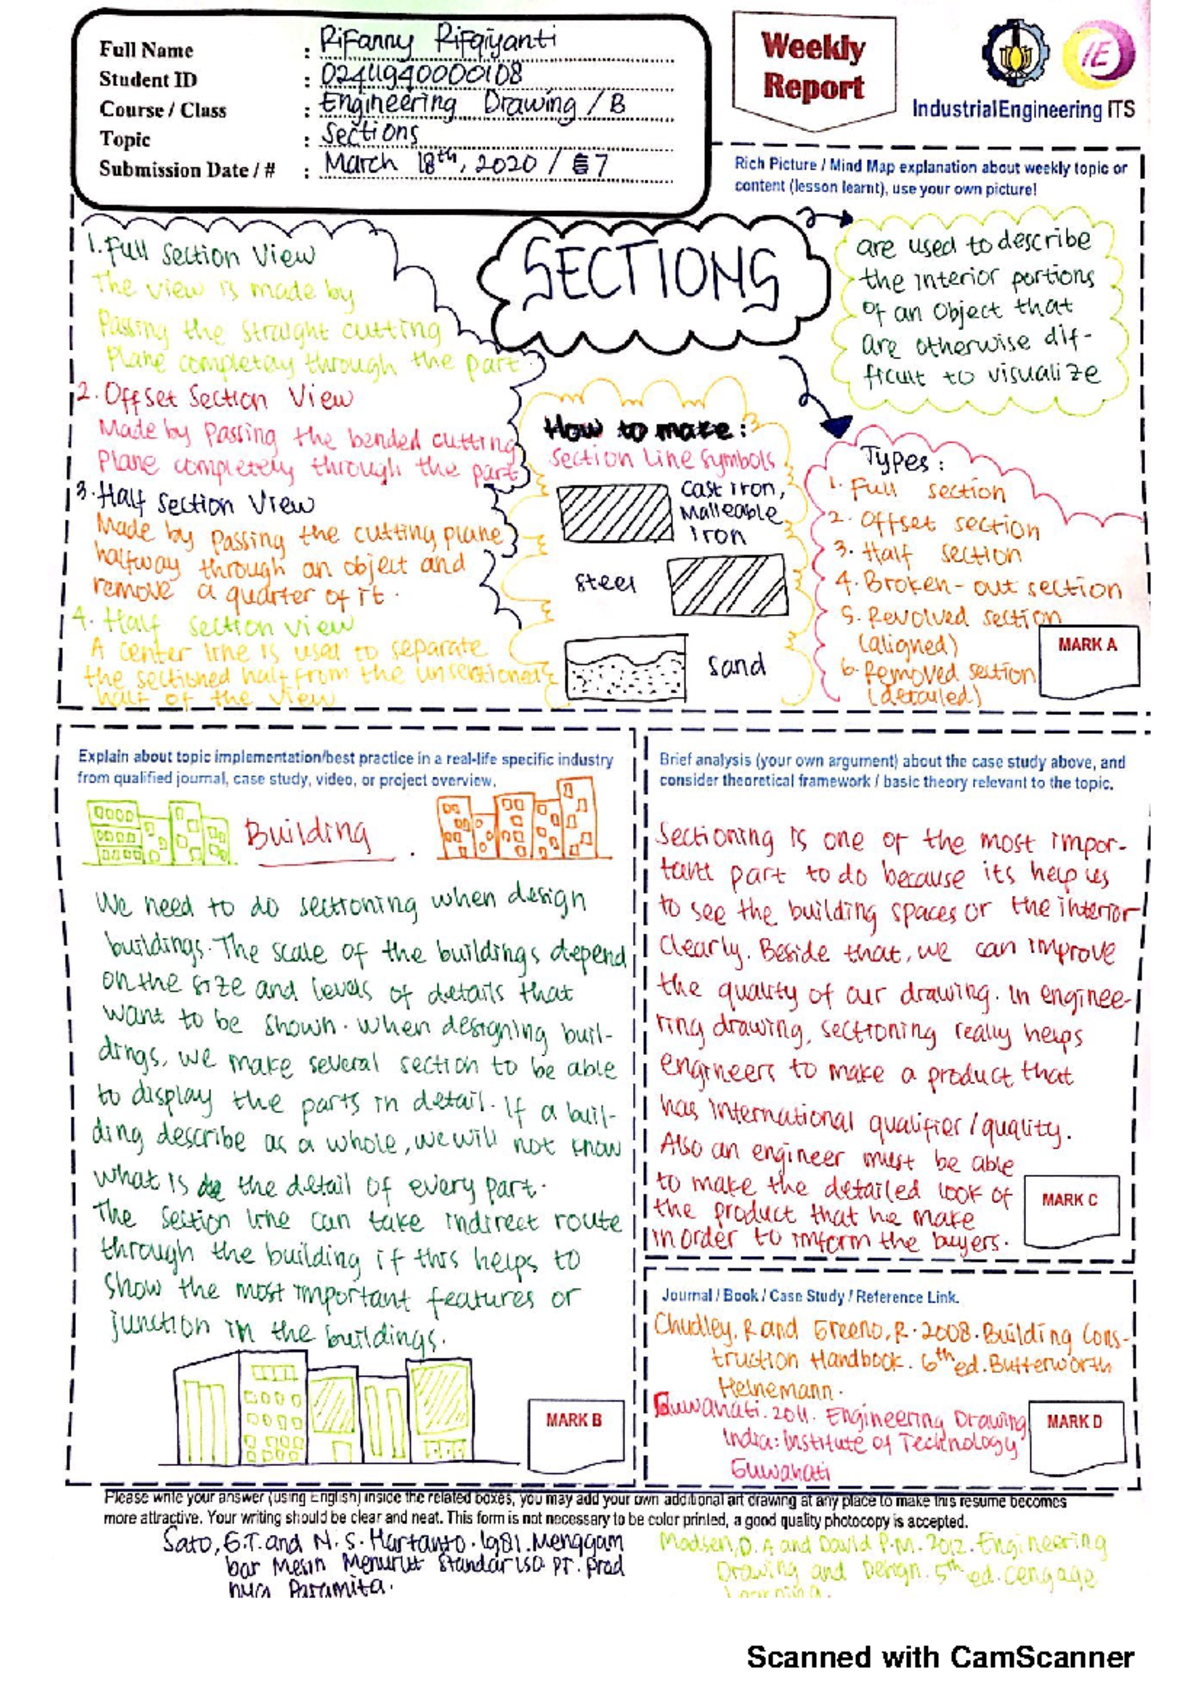 Full Name : Rifanny Rifqiyanti
Student ID : 02411940000108
Course / Class : Engineering Drawing / B
Topic : Sections
Submission Date / # : March 18th, 2020 / 7
Weekly
Report
IndustrialEngineering ITS
Rich Picture / Mind Map explanation about weekly topic or
content (lesson learnt), use your own picture!
SECTIONS
are used to describe
the interior portions
of an object that
are otherwise dif-
ficult to visualize
1. Full Section View
The view is made by
Passing the straight cutting
Plane completay through the part.
2. Offset Section View
Made by Passing the bended cutting
Plane completely through the part
3. Half Section View
Made by passing the cutting plane
halfway through an object and
remove a quarter of it.
4. Half section view
A center line is used to separate
the sectioned half from the unsectioned
half of the view
How to make:
Section Line Symbols
Cast iron,
Malleable
iron
Steel
Sand
Types:
1. Full section
2. Offset section
3. Half section
4. Broken-out section
5. Revolved section
(aligned)
6. Removed section
(detailed)
MARK A
Explain about topic implementation/best practice in a real-life specific industry
from qualified journal, case study, video, or project overview.
Building
We need to do sectioning when design
buildings. The scale of the buildings depend
on the size and levels of details that
want to be shown. When designing buil-
dings, we make several section to be able
to display the parts in detail. If a buil-
ding describe as a whole, we will not know
what is the detail of every part.
The section line can take indirect route
through the building if this helps to
show the most important features or
junction in the buildings.
MARK B
Brief analysis (your own argument) about the case study above, and
consider theoretical framework / basic theory relevant to the topic.
Sectioning is one of the most impor-
tant part to do because its help us
to see the building spaces or the interior
clearly. Beside that, we can improve
the quality of our drawing. In enginee-
ring drawing, sectioning really helps
engineers to make a product that
has international qualifier/quality.
Also an engineer must be able
to make the detailed look of
the product that he make
in order to imform the buyers.
MARK C
Journal / Book / Case Study / Reference Link.
Chudley, R and Greeno, R. 2008. Building Cons-
truction Handbook. 6th ed. Butterworth
Heinemann.
Guwahati. 2011. Engineering Drawing
India: Institute of Technology
Guwahati
MARK D
Please write your answer (using English) inside the related boxes, you may add your own additional art drawing at any place to make this resume becomes
more attractive. Your writing should be clear and neat. This form is not necessary to be color printed, a good quality photocopy is accepted.
Sato, G.T. and N. S. Hartanto. 1981. Menggam
bar Mesin Menurut Standar ISO. PT. Prad
nya Paramita.
Madsen, D. A and David P. M. 2012. Engineering
Drawing and Design. 5th ed. Cengage
Learning.
Scanned with CamScanner